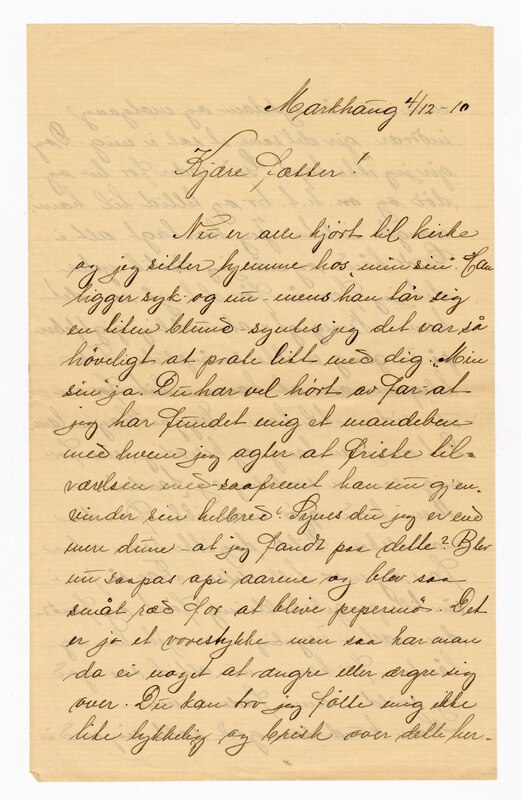 Markhaug 4/12-10
Kjære Fætter!
Nu er alle kjört til kirke
og jeg sitter hjemme hos "min sin". Han
ligger syk og nu - mens han tar sig
en liten blund syntes jeg det var så
höveligt at prate litt med dig. "Min
sin" ja. Du har vel hört av far at
jeg har fundet mig et mandeben
med hvem jeg agter at friste til-
værelsen med saafremt han nu gjen-
vinder sin helbred! Synes du jeg er end
mere dum - at jeg fandt paa dette? Blev
nu saapas api aarene og blev saa
småt ræd for at blive pepermö. Det
er jo et vovestykke men saa har man
da ei noget at angre eller ærgre sig
over. Du kan tro jeg fölte mig ikke
lite lykkelig og brisk over dette her-